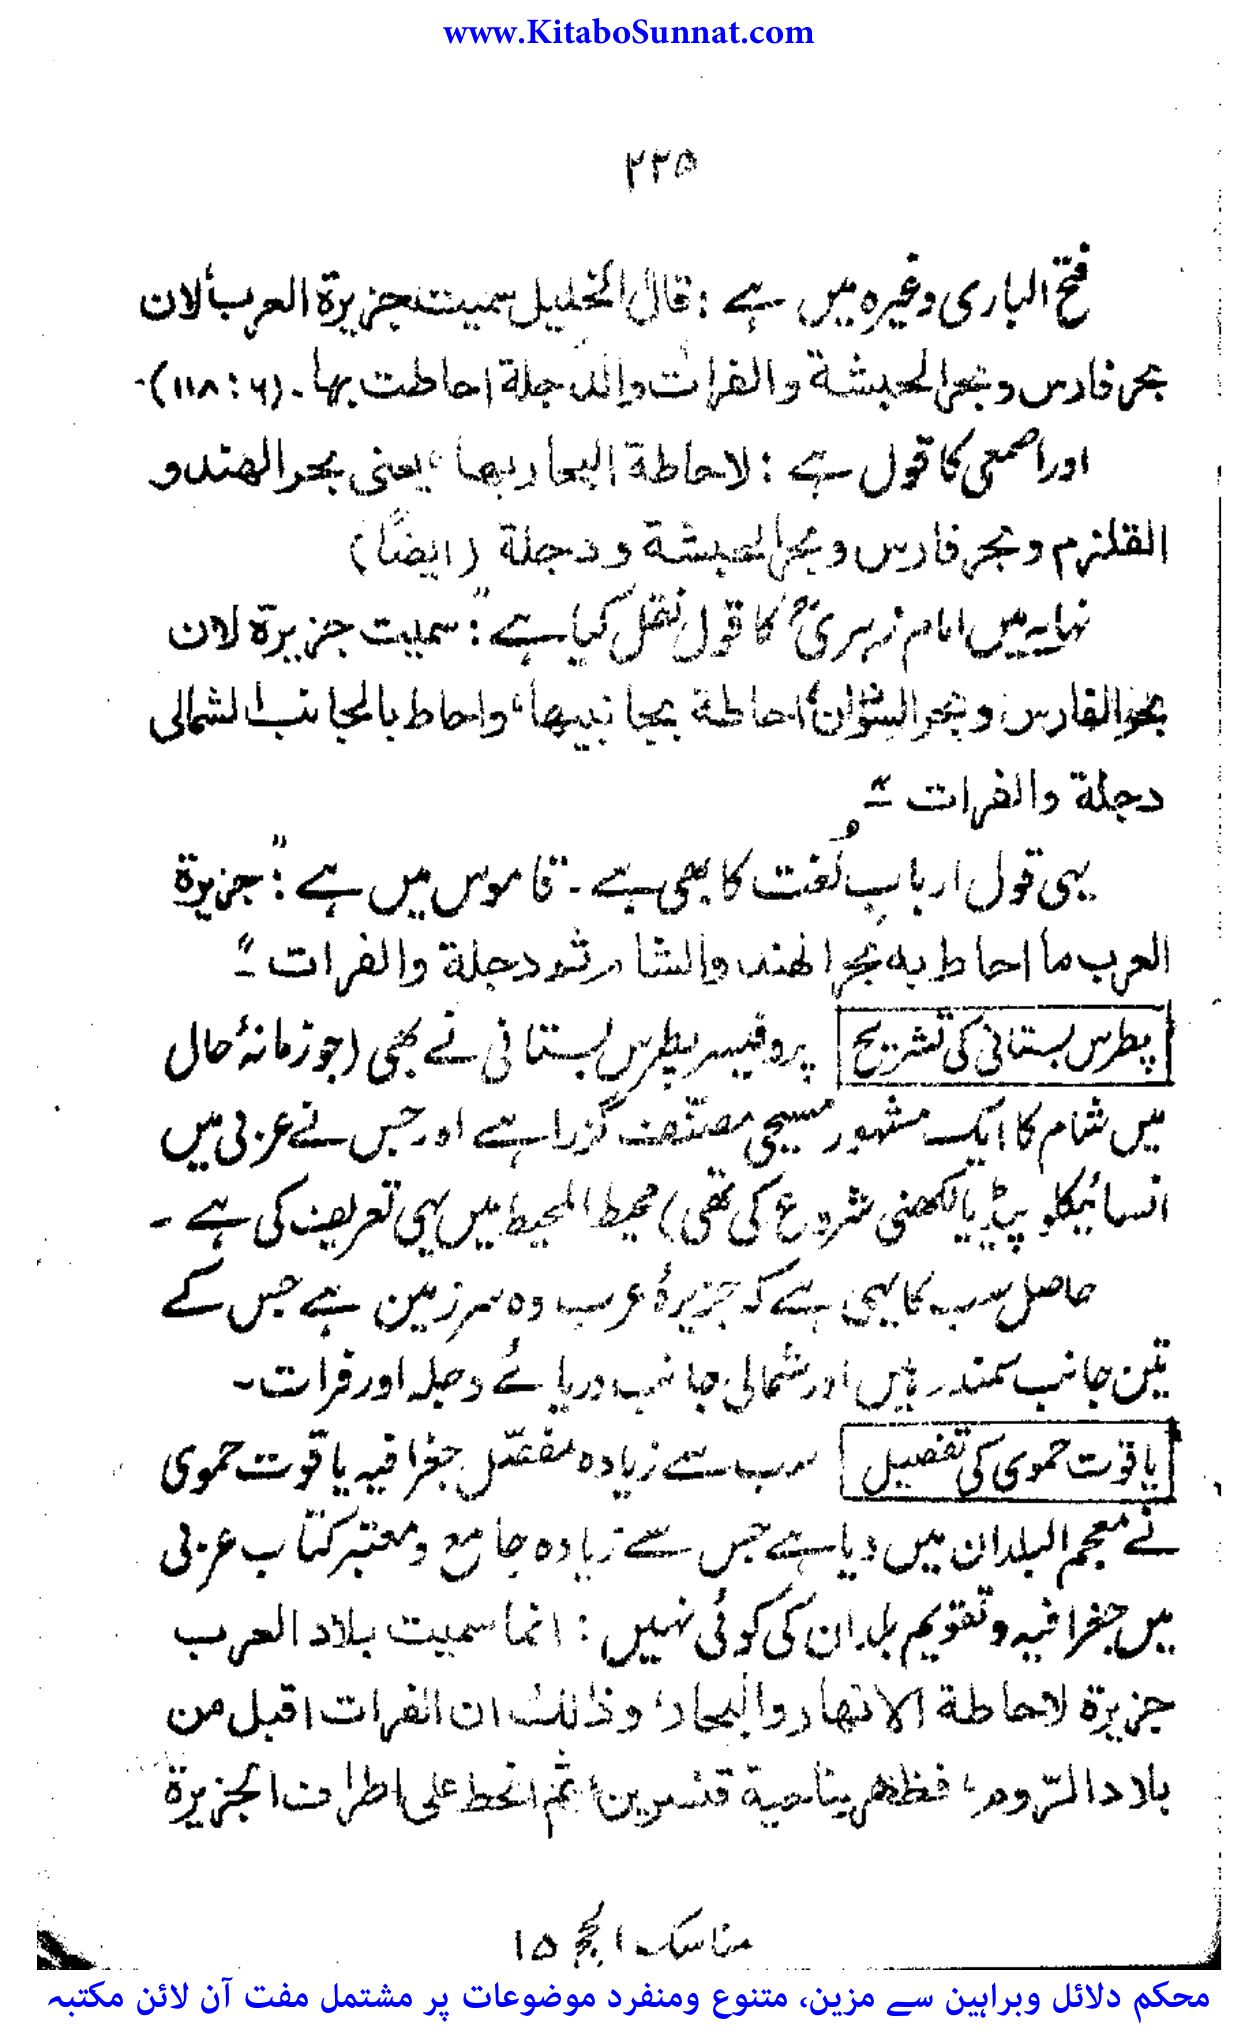 www.KitaboSunnat.com
۲۲۵
فتح الباری وغیرہ میں ہے : قال الخلیل سمیت جزیرۃ العرب لان
بحر فارس وبحر الحبشة والفرات والدجلة احاطت بها۔ (۶ : ۱۱۸)۔
اور اصمعی کا قول ہے : لاحاطة البحار بها، یعنی بحر الهند و
القلزم وبحر فارس وبحر الحبشة ودجلة (ایضاً)
نہایہ میں امام زہریؒ کا قول نقل کیا ہے :" سمیت جزیرة لان
بحر الفارس وبحر السودان احاطة بجانبیها، واحاط بالجانب الشمالی
دجلة والفرات "۔
یہی قول اربابِ لُغت کا بھی ہے۔ قاموس میں ہے :" جزیرة
العرب ما احاط به بحر الهند والشام ثم دجلة والفرات "۔
پطرس بستانی کی تشریح پروفیسر پطرس بستانی نے بھی (جو زمانۂ حال
میں شام کا ایک مشہور مسیحی مصنّف گزرا ہے اور جس نے عربی میں
انسائیکلوپیڈیا لکھنی شروع کی تھی) محیط المحیط میں یہی تعریف کی ہے ۔
حاصل سب کا یہی ہے کہ جزیرۂ عرب وہ سرزمین ہے جس کے
تین جانب سمندر ہیں اور شمالی جانب دریائے دجلہ اور فرات۔
یاقوت حموی کی تفصیل سب سے زیادہ مفصّل جغرافیہ یاقوت حموی
نے معجم البلدان میں دیا ہے جس سے زیادہ جامع و معتبر کتاب عربی
میں جغرافیہ و تقویم بلدان کی کوئی نہیں : انما سمیت بلاد العرب
جزیرة لاحاطة الانهار والبحار، وذلك ان الفرات اقبل من
بلاد الرّوم، فظهر بناحیة قنسرین، ثم انحط علی اطراف الجزیرة
مناسک الحج ۱۵
محکم دلائل وبراہین سے مزین، متنوع ومنفرد موضوعات پر مشتمل مفت آن لائن مکتبہ